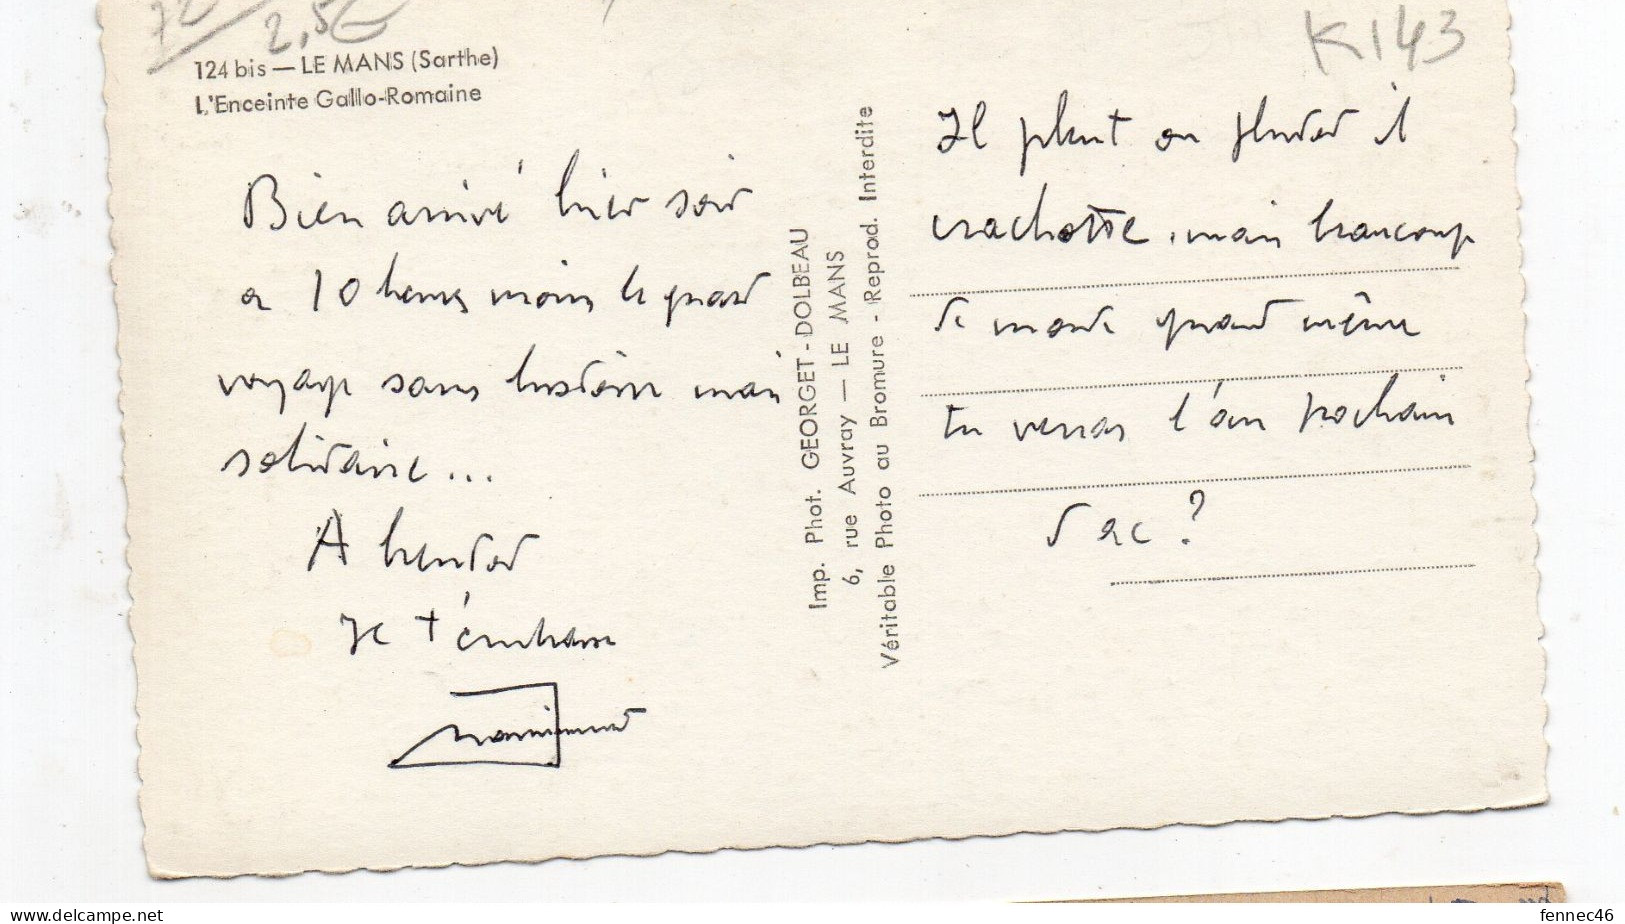 72
2,5€
K143
124 bis — LE MANS (Sarthe)
L'Enceinte Gallo-Romaine
Bien arrivé hier soir
a 10 heures moins le quart
voyage sans histoire mais
solitaire...
A bientot
Je t'embrasse
Imp. Phot. GEORGET-DOLBEAU
6, rue Auvray — LE MANS
Véritable Photo au Bromure - Reprod. Interdite
Il pleut ou plutot il
crachotte, mais beaucoup
de monde quand même
tu verras l'an prochain
d'ac ?
fennec46